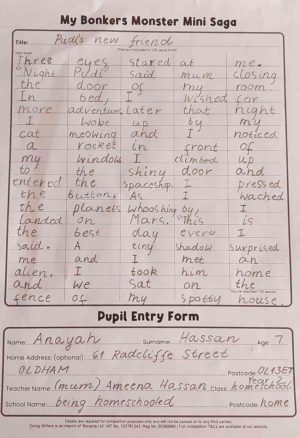 My Bonkers Monster Mini Saga
Title: Pudi's new friend
(Title not included in 100 word limit)
Three eyes stared at me.
"Night Pudi" said mum closing
the door of my room
In bed, I wished for
more adventure. Later that night
I woke up by my
cat meowing and I noticed
a rocket in front of
my window I climbed up
to the shiny door and
entered the spaceship. I pressed
the button. As I wached
the planets whooshing by, I
landed on Mars. "This is
the best day ever" I
said. A tiny shadow surprised
me and I met an
alien. I took him home
and we sat on the
fence of my spotty house.
Pupil Entry Form
Name: Anayah Surname: Hassan Age: 7
Home Address: (optional) 61 Radcliffe Street
OLDHAM Postcode OL13ET
Teacher Name: (mum) Ameena Hassan Class: homeschool Year 2
School Name: being homeschooled Postcode home
Details are required for competition purposes only and will not be passed on to any third parties.